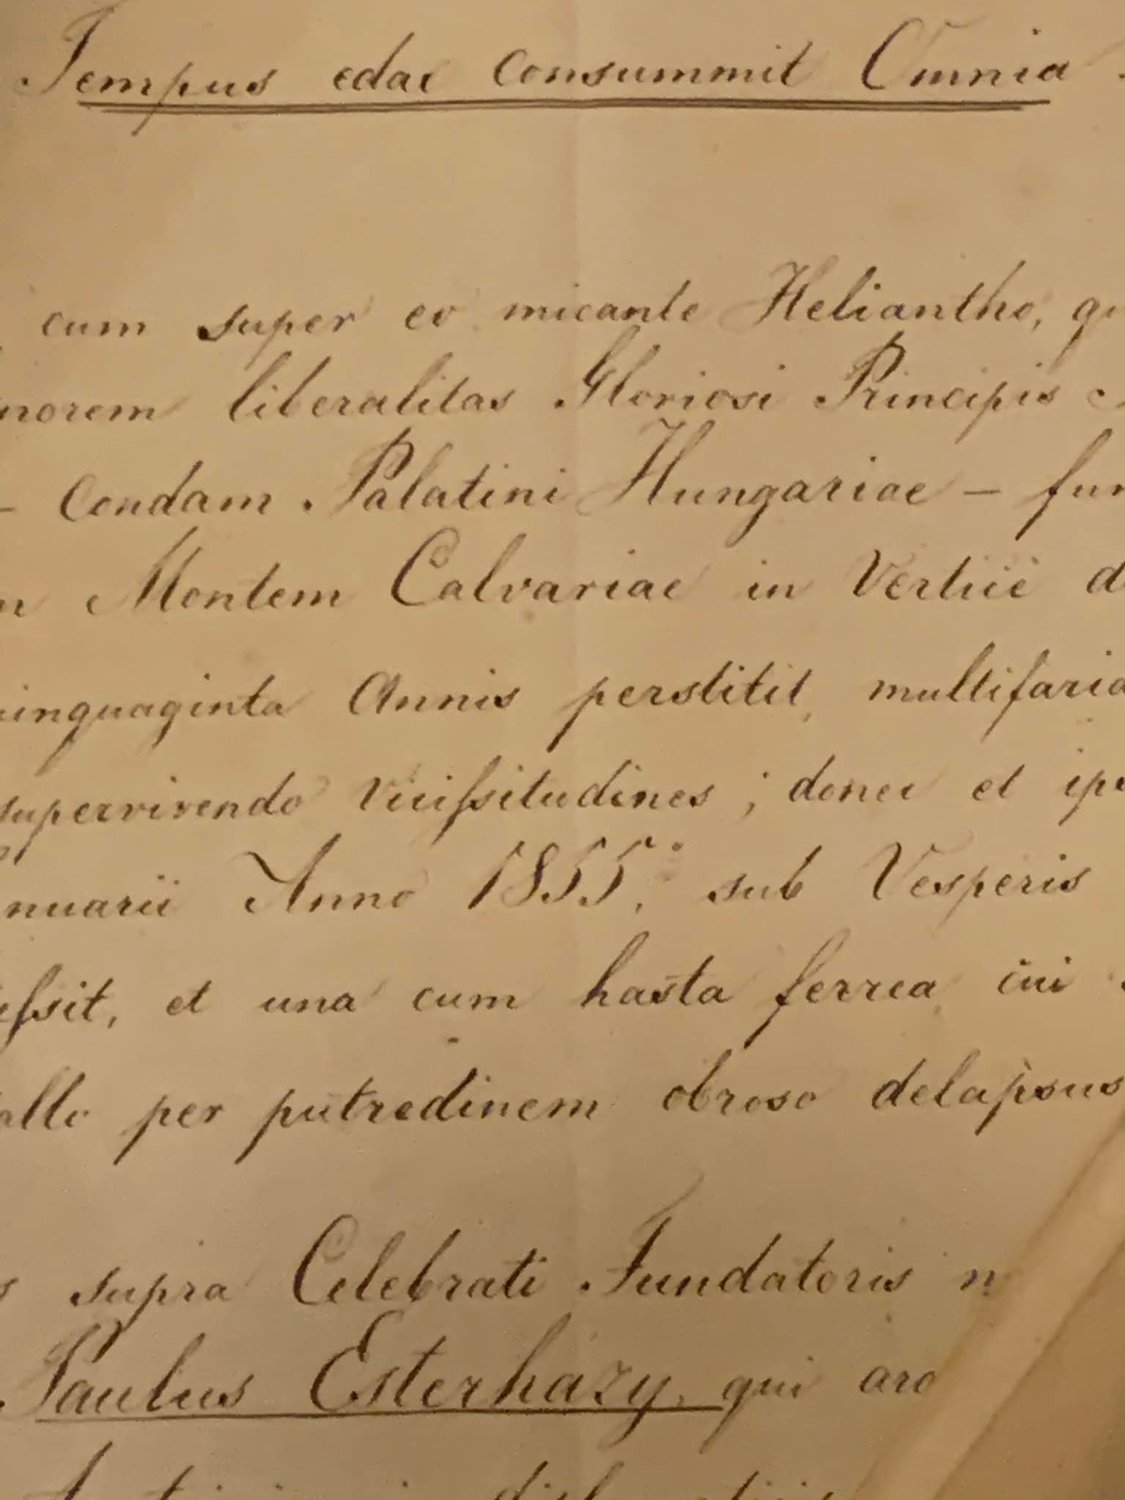 Tempus edac consummit Omnia
cum super eo micante Heliantho,
norem liberalitas Gloriosi Principis
– Condam Palatini Hungariae –
Montem Calvariae in Verticë
inquaginta Annis perstitit,
supervivendo Vicifsitudines ; donec et
nuarii Anno 1855. sub Vesperis
efsit, et una cum hasta ferrea cui
allo per putredinem obroso delapsus
supra Celebrati Fundatoris
Paulus Esterhazy, qui